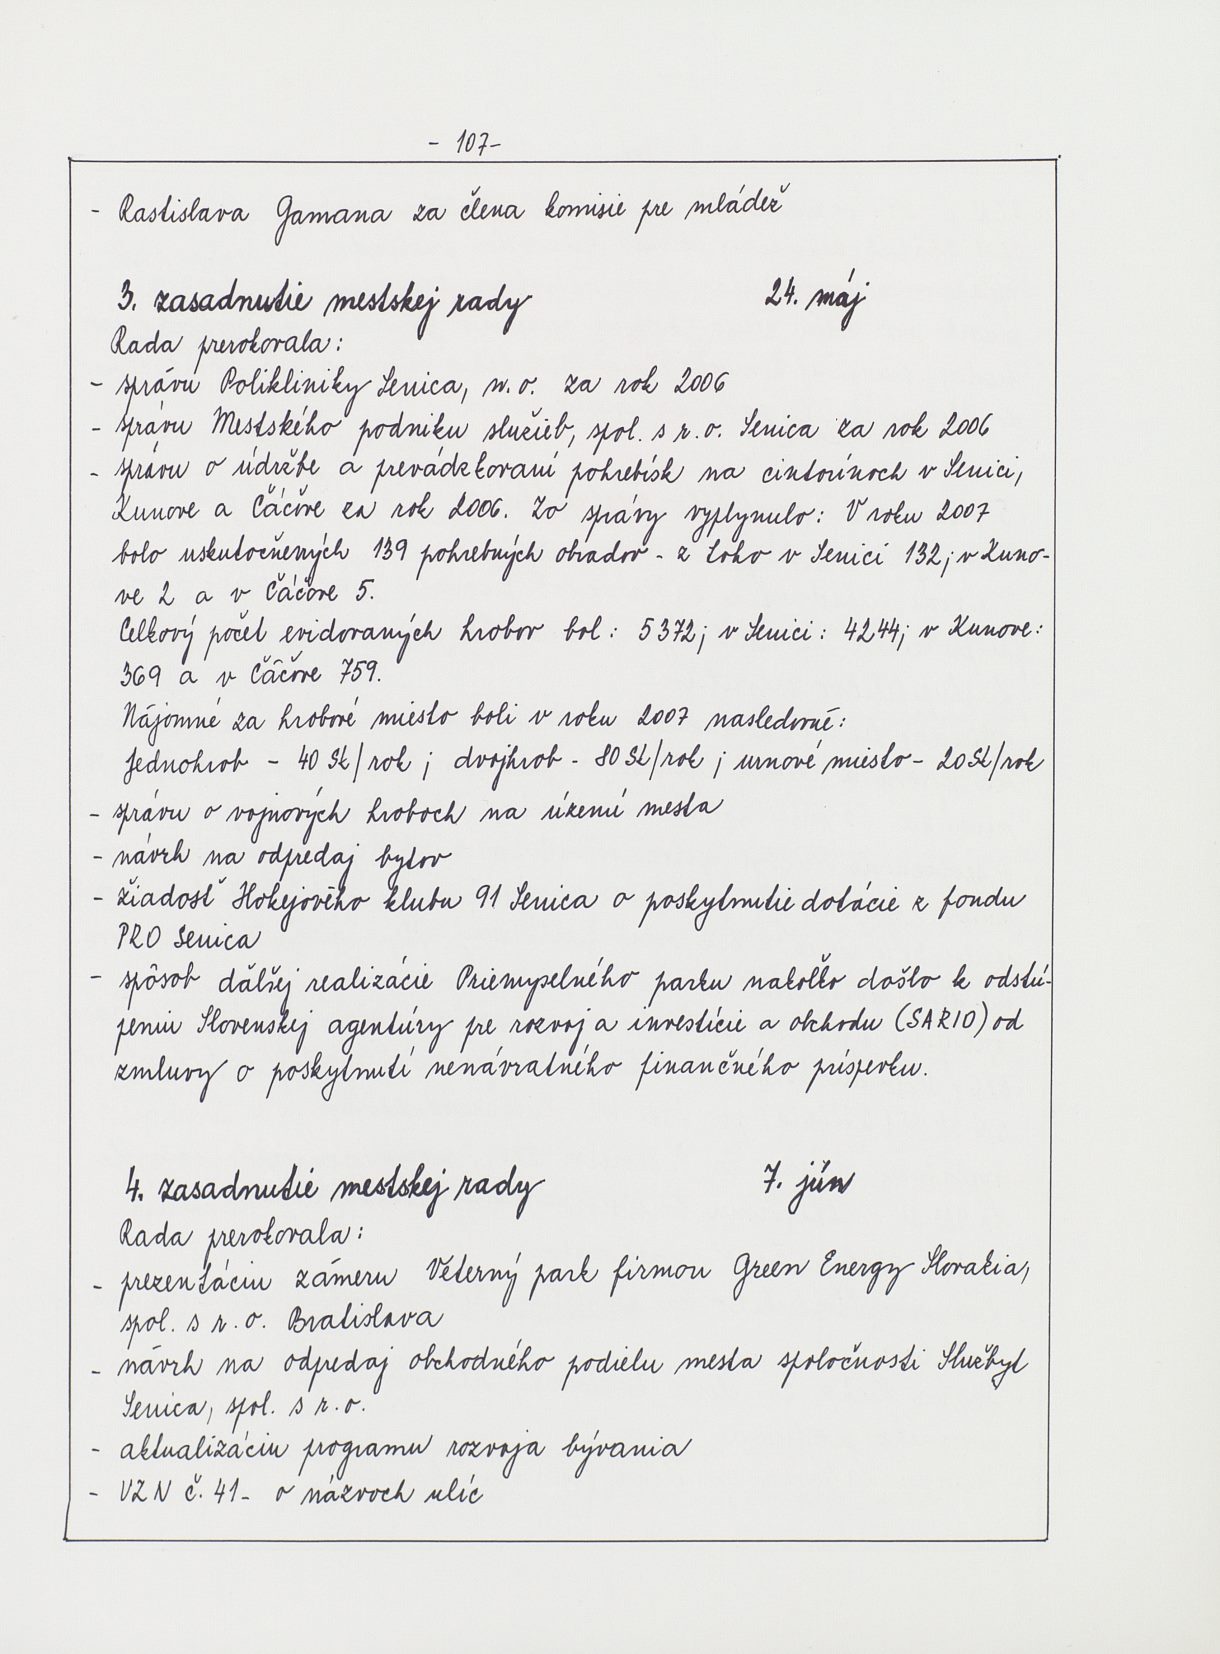 - 107-
- Rastislava Gamana za člena komisie pre mládež
3. zasadnutie mestskej rady 24. máj
Rada prerokovala:
- správu Polikliniky Senica, n.o. za rok 2006
- správu Mestského podniku služieb, spol. s r.o. Senica za rok 2006
- správu o údržbe a prevádzkovaní pohrebísk na cintorínoch v Senici,
Kunove a Čáčove za rok 2006. Zo správy vyplynulo: V roku 2007
bolo uskutočnených 139 pohrebných obradov - z toho v Senici 132; v Kuno-
ve 2 a v Čáčove 5.
Celkový počet evidovaných hrobov bol: 5372; v Senici: 4244; v Kunove:
369 a v Čáčove 759.
Nájomné za hrobové miesto boli v roku 2007 nasledovné:
Jednohrob - 40 Sk/rok; dvojhrob - 80 Sk/rok; urnové miesto - 20 Sk/rok
- správu o vojnových hroboch na území mesta
- návrh na odpredaj bytov
- žiadosť Hokejového klubu 91 Senica o poskytnutie dotácie z fondu
PRO Senica
- spôsob ďalšej realizácie Priemyselného parku nakoľko došlo k odstú-
peniu Slovenskej agentúry pre rozvoj a investície a obchodu (SARIO) od
zmluvy o poskytnutí nenávratného finančného príspevku.
4. zasadnutie mestskej rady 7. jún
Rada prerokovala:
- prezentáciu zámeru Veterný park firmou Green Energy Slovakia,
spol. s r.o. Bratislava
- návrh na odpredaj obchodného podielu mesta spoločnosti Službyt
Senica, spol. s r.o.
- aktualizáciu programu rozvoja bývania
- VZN č. 41- o názvoch ulíc